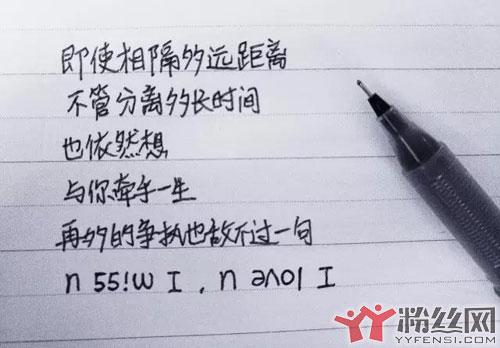 即使相隔多远距离
不管分离多长时间
也依然想
与你牵手一生
再多的争执也敌不过一句
n 55!w I , n ǝʌol I
粉丝网
YYFENSI.COM